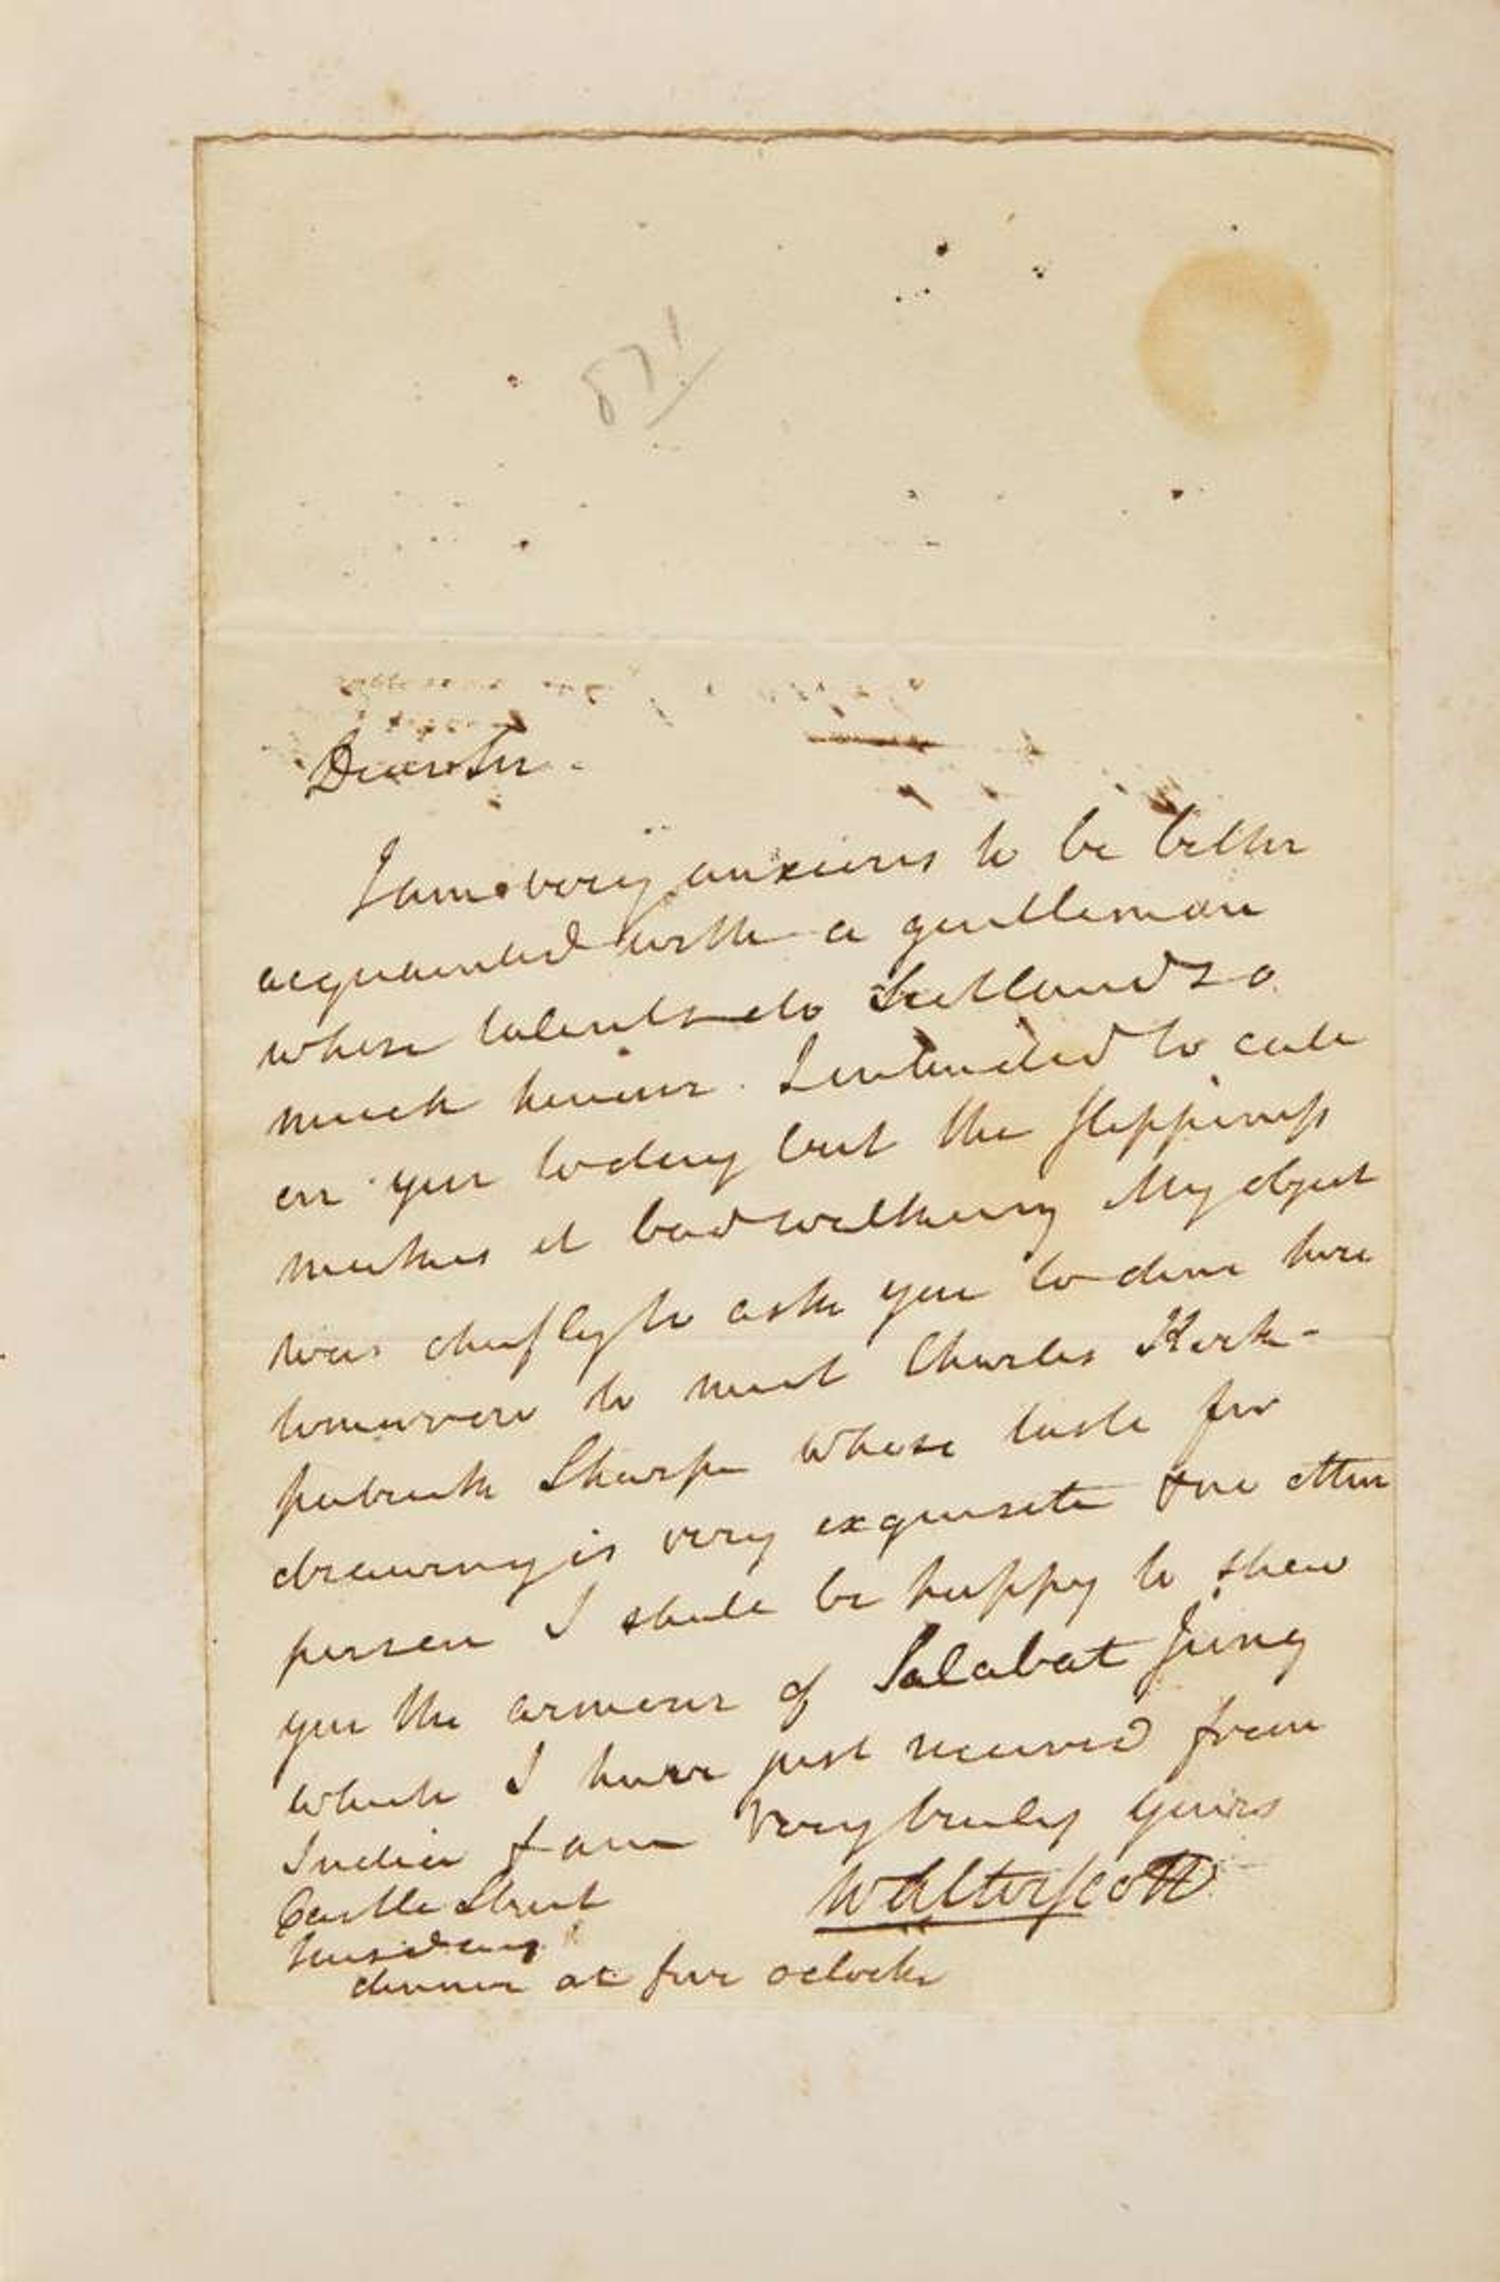 87!
Dear Sir
I am very anxious to be better
acquainted with a gentleman
whose talents do Scotland so
much honour. I intended to call
on you today but the slipperiness
makes it bad walking My object
was chiefly to ask you to dine here
tomorrow to meet Charles Kirk-
patrick Sharpe whose taste for
drawing is very exquisite & one other
person I shall be happy to shew
you the armour of Salabat Jung
which I have just received from
India & am Very truly yours
Walter Scott
Castle Street
tuesday
dinner at five oclock